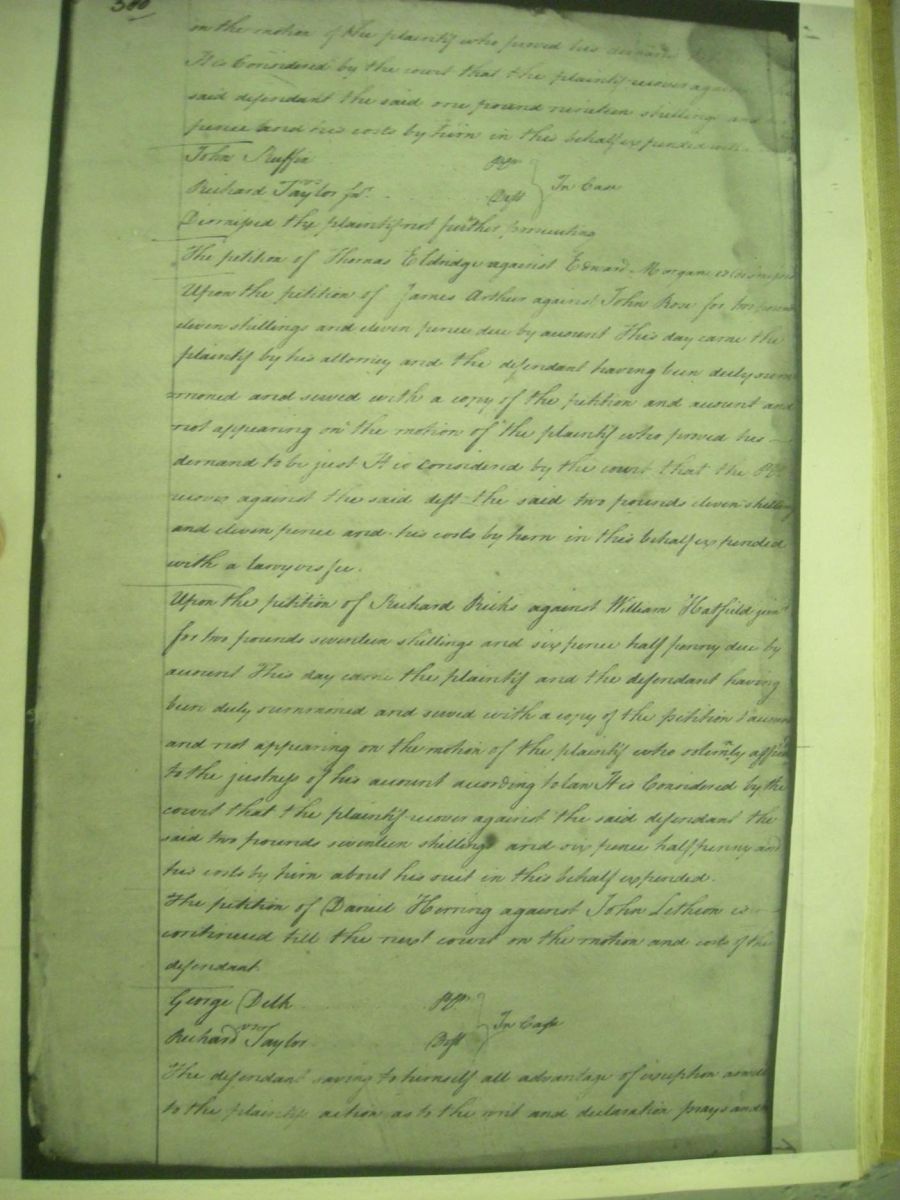 380
on the motion of the plaintif who proved his demand
It is Considered by the court that the plaintif recover against the
said defendant the said one pound nineteen shillings and
pence and his costs by him in this behalf expended
John Ruffin Plt
vs In Case
Richard Taylor Junr. Deft
Dismissed the plaintif not further prosecuting
The petition of Thomas Eldridge against Edward Morgan is dismissed
Upon the petition of James Arthur against John Rose for two pounds
eleven shillings and eleven pence due by account This day came the
plaintif by his attorney and the defendant having been duly sum
moned and served with a copy of the petition and account and
not appearing on the motion of the plaintif who proved his
demand to be just It is considered by the court that the Plt.
recover against the said deft. the said two pounds eleven shillings
and eleven pence and his costs by him in this behalf expended
with a lawyers fee.
Upon the petition of Richard Ricks against William Hatfield junr
for two pounds seventeen shillings and six pence half penny due by
account This day came the plaintif and the defendant having
been duly summoned and served with a copy of the petition & account
and not appearing on the motion of the plaintif who solemnly affirmed
to the justness of his account according to law It is Considered by the
court that the plaintif recover against the said defendant the
said two pounds seventeen shillings and six pence half penny and
his costs by him about his suit in this behalf expended.
The petition of Daniel Herring against John is
continued till the next court on the motion and costs of the
defendant.
George Delk Plt
vs In Case
Richard Taylor Deft
The defendant saving to himself all advantage of exception as well
to the plaintifs action as to the writ and declaration prays and